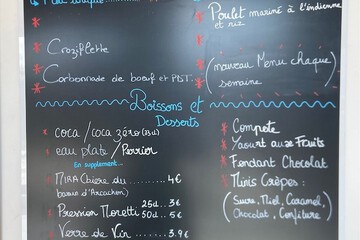 Plat unique
Poulet mariné à l'indienne
et riz
Croziflette
(nouveau Menu chaque
semaine)
Carbonnade de boeuf et PDT.
Boissons et
Desserts
coca/coca zéro (33cl)
eau plate/Perrier
En supplément...
MIRA (bière du ........ 4€
bassin d'Arcachon)
Pression Moretti 25cl.. 3€
50cl.. 5€
Verre de Vin ....... 3.9€
Compote
Yaourt aux Fruits
Fondant Chocolat
Minis Crêpes :
(Sucre, Miel, Caramel,
Chocolat, Confiture)